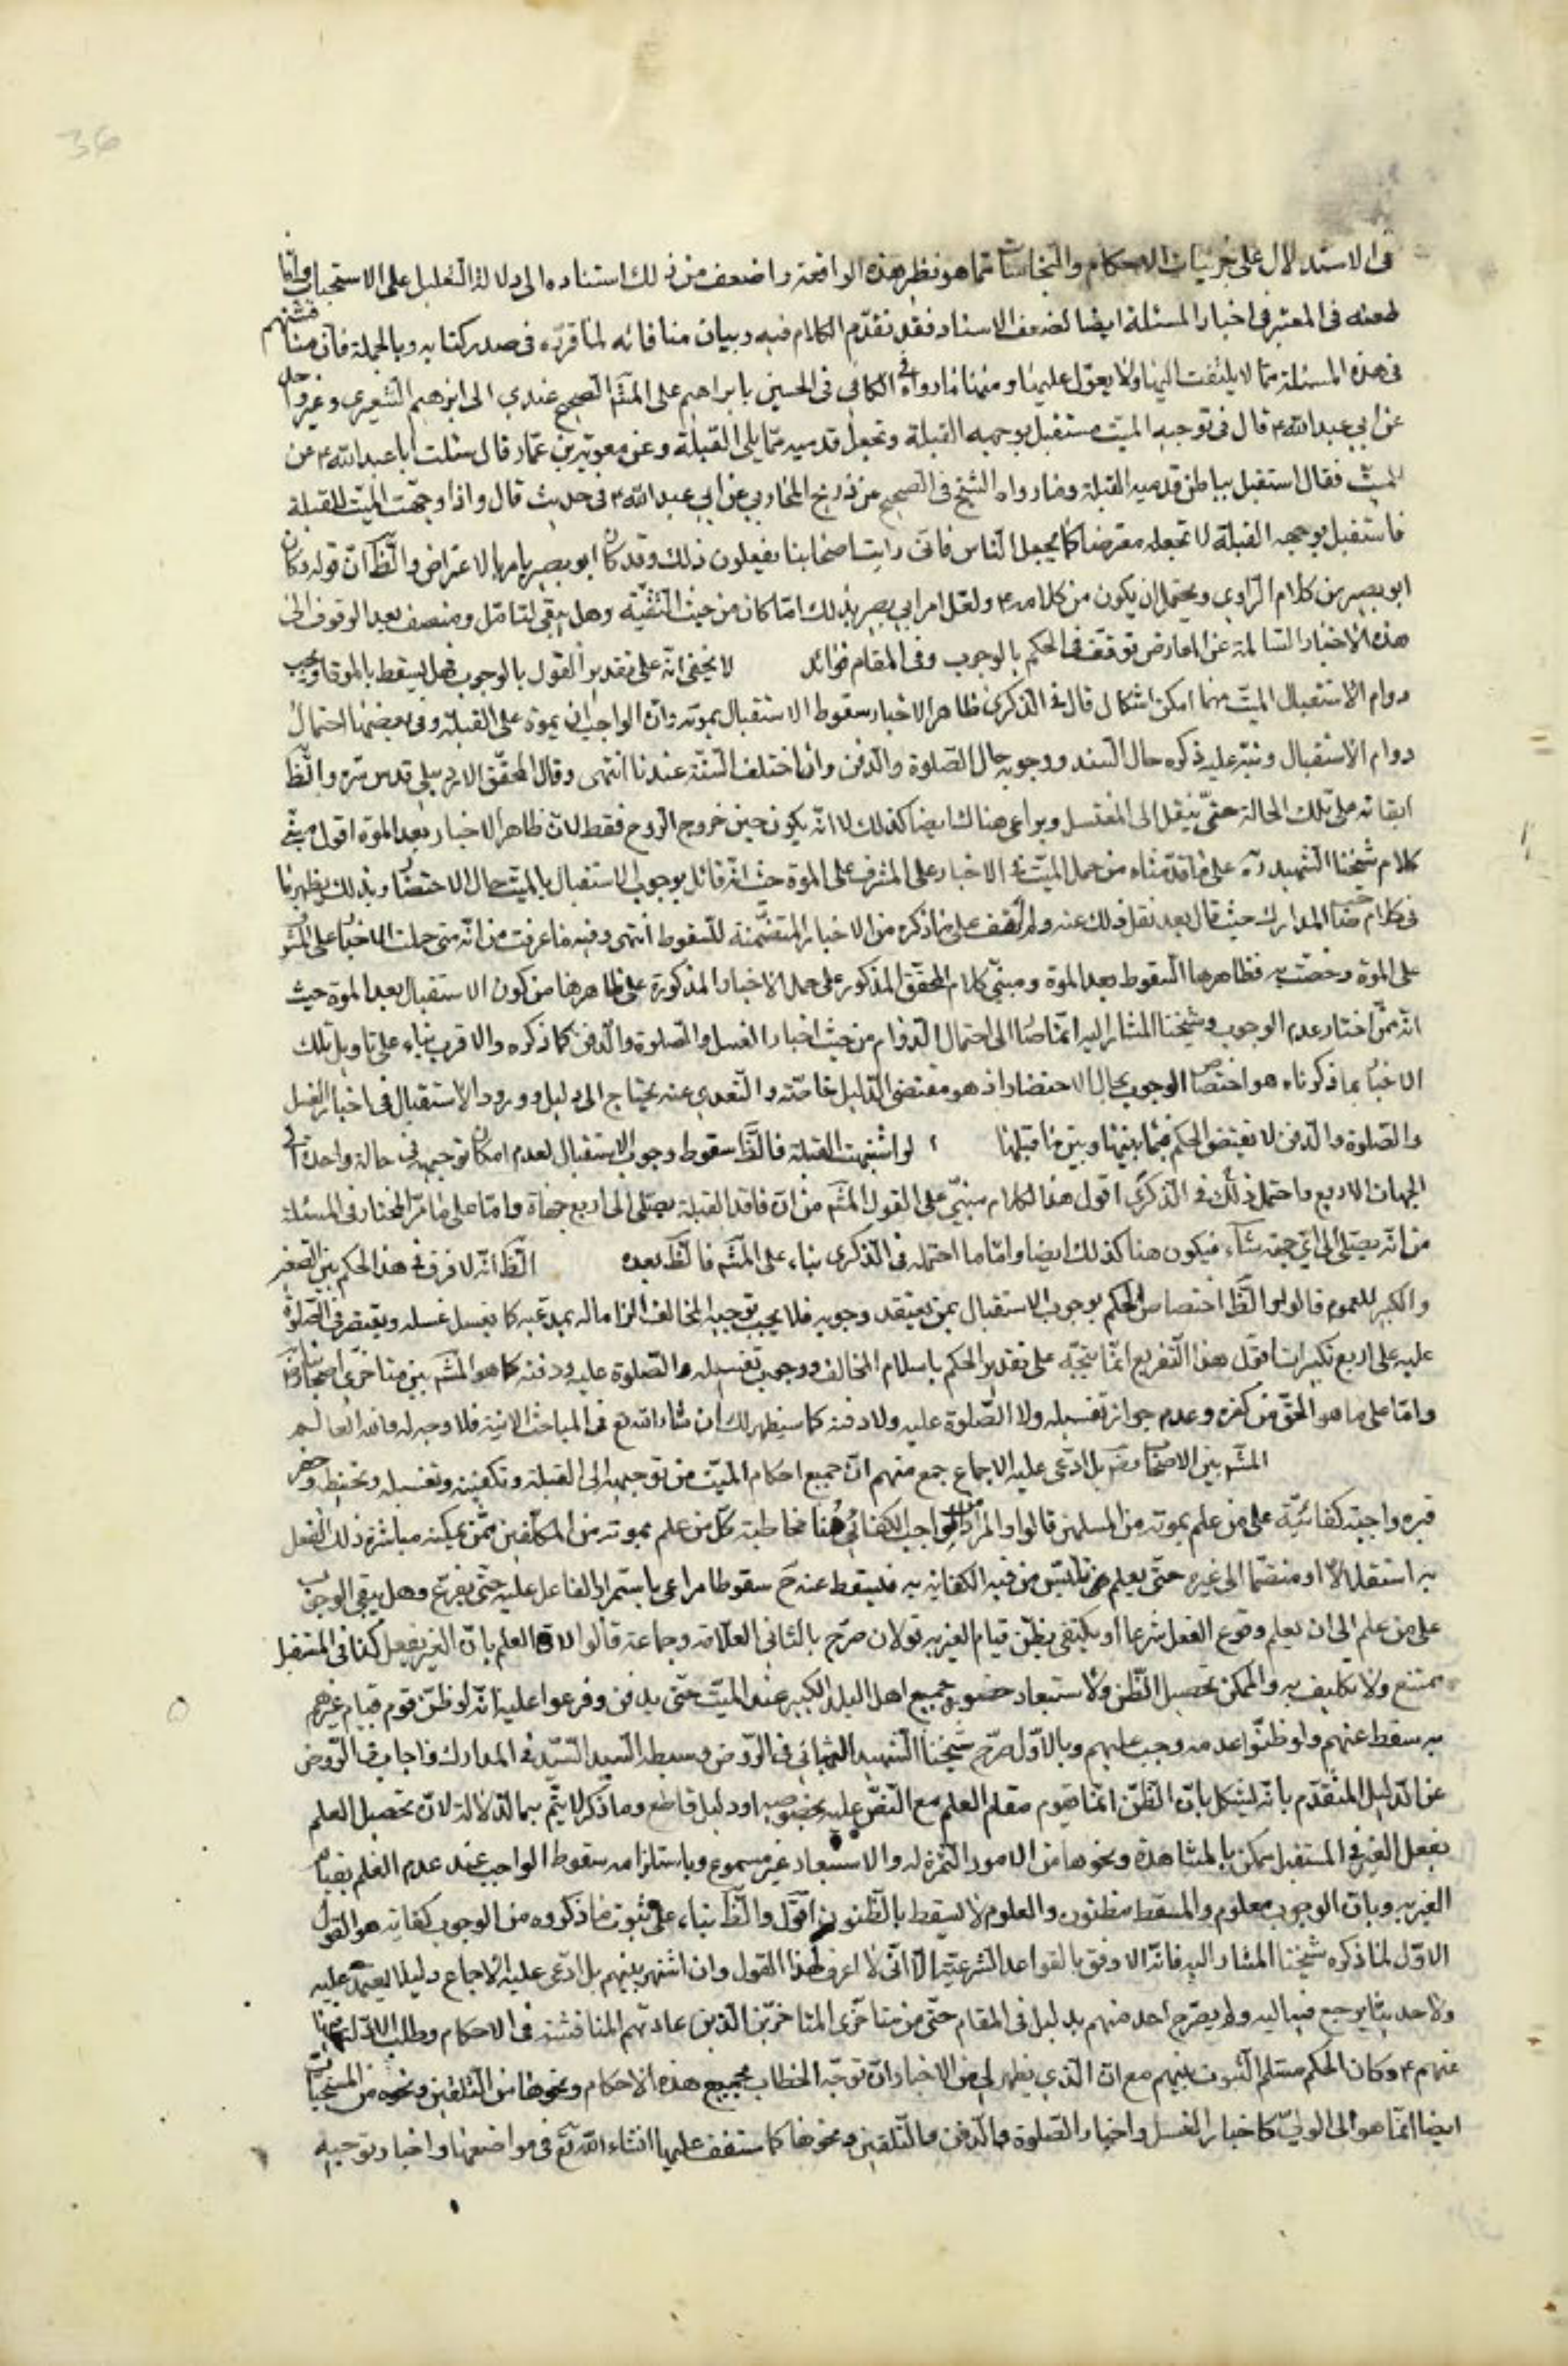 36
فى الاستدلال على جزئيات الاحكام والنجاسات مما هو نظير هذه الواقعة واضعف من ذلك استناده الى دلالة التعليل على الاستحباب واما
طعنه فى المعتبر فى اخبار المسئلة ايضا لضعف الاسناد فقد تقدم الكلام فيه وبيان منافاته لما قرره فى صدر كتابه وبالجملة فان مناقشتهم
فى هذه المسئلة مما لا يلتفت اليها ولا يعول عليها ومنها ما رواه فى الكافى فى الحسن بابراهيم على المشهور الصحيح عندي الى ابرهيم الشعيرى وغير واحد
عن ابي عبد الله ع قال فى توجيه الميت مستقبل بوجهه القبلة وتجعل قدميه مما يلى القبلة وعن معوية بن عمار قال سئلت ابا عبد الله ع عن
الميت فقال استقبل بباطن قدميه القبلة وما رواه الشيخ فى الصحيح عن ذريح المحاربي عن ابي عبد الله ع فى حديث قال واذا وجهت الميت للقبلة
فاستقبل بوجهه القبلة لا تجعله معترضا كما يجعل الناس فانى رايت اصحابنا يفعلون ذلك وقد كان ابو بصير يامر بالاعتراض والظ ان قوله وكان
ابو بصير من كلام الراوي ويحتمل ان يكون من كلامه ع ولعل امر ابي بصير بذلك انما كان من حيث التقية وهل يبقى لتامل ومنصف بعد الوقوف الى
هذه الاخبار السالمة عن المعارض توقف فى الحكم بالوجوب وفى المقام فوائد لا يخفى انه على تقدير القول بالوجوب فهل يسقط بالموت او يجب
دوام الاستقبال الميت مهما امكن اشكال قال فى الذكرى ظاهر الاخبار سقوط الاستقبال بموته وان الواجب ان يموت على القبلة وفى بعضها احتمال
دوام الاستقبال ونبه عليه ذكره حال السند ووجوبه حال الصلوة والدفن وان اختلف السنة عندنا انتهى وقال المحقق الاردبيلى قدس سره والظ
ابقائه على تلك الحالة حتى ينقل الى المغتسل ويراعى هناك ايضا كذلك لا انه يكون حين خروج الروح فقط لان ظاهر الاخبار بعد الموت اقول مبنى
كلام شيخنا الشهيد ره على ما قدمناه من حمل الميت فى الاخبار على المشرف على الموت حيث انه قائل بوجوب الاستقبال بالميت حال الاحتضار وبذلك يظهر ما
فى كلام صاحب المدارك حيث قال بعد نقل ذلك عنه ولم اقف على ما ذكره من الاخبار المتضمنة للسقوط انتهى وفيه ما عرفت من انه متى حملت الاخبار على المشرف
على الموت وخصت به فظاهرها السقوط بعد الموت ومبنى كلام المحقق المذكور على حمل الاخبار المذكورة على ظاهرها من كون الاستقبال بعد الموت حيث
انه ممن اختار عدم الوجوب وشيخنا المشار اليه انما صار الى احتمال الدوام من حيث اخبار الغسل والصلوة والدفن كما ذكره والاقرب بناء على تاويل تلك
الاخبار بما ذكرناه هو اختصاص الوجوب بحال الاحتضار اذ هو مقتضى الدليل خاصة والتعدي عنه يحتاج الى دليل وورود الاستقبال فى اخبار الغسل
والصلوة والدفن لا يقتضى الحكم فيما بينها وبين ما قبلها لو اشتبهت القبلة فالظ سقوط وجوب الاستقبال لعدم امكان توجيهه فى حالة واحدة الى
الجهات الاربع واحتمل ذلك فى الذكرى اقول هذا الكلام مبنى على القول المشهور من ان فاقد القبلة يصلى الى اربع جهات واما على ما مر المختار فى المسئلة
من انه يصلى الى اي جهة شاء فيكون هنا كذلك ايضا واما ما احتمله فى الذكرى بناء على المشهور فالظ بعده الظ انه لا فرق فى هذا الحكم بين الصغير
والكبير للعموم قالوا والظ اختصاص الحكم بوجوب الاستقبال بمن يعتقد وجوبه فلا يجب توجيه المخالف الزاما له بمذهبه كما يغسل غسله ويقتصر فى الصلوة
عليه على اربع تكبيرات اقول هذا التفريع انما يتجه على تقدير الحكم باسلام المخالف ووجوب تغسيله والصلوة عليه ودفنه كما هو المشهور بين متاخرى اصحابنا
واما على ما هو الحق من كفره وعدم جواز تغسيله ولا الصلوة عليه ولا دفنه كما سيظهر لك ان شاء الله تع فى المباحث الاتية فلا وجه له والله العالم
المشهور بين الاصحاب رض بل ادعى عليه الاجماع جمع منهم ان جميع احكام الميت من توجيهه الى القبلة وتكفينه وتغسيله وتحنيطه وحفر
قبره واجبة كفائية على من علم بموته من المسلمين قالوا والمراد من الواجب الكفائي هنا مخاطبة كل من علم بموته من المكلفين ممن يمكنه مباشرة ذلك الفعل
به استقلالا او منضما الى غيره حتى يعلم تلبس من فيه الكفاية به فيسقط عنه ح سقوطا مراعى باستمرار الفاعل عليه حتى يفرغ وهل يبقى الوجوب
على من علم الى ان يعلم وقوع الفعل شرعا او يكتفى بظن قيام الغير به قولان صرح بالثانى العلامة وجماعة قالوا لان العلم بان الغير يفعل كذا فى المستقبل
ممتنع ولا تكليف به والممكن تحصيل الظن ولاستبعاد حضور جميع اهل البلد الكبير عند الميت حتى يدفن وفرعوا عليه انه لو ظن قوم قيام غيرهم
به سقط عنهم ولو ظنوا عدمه وجب عليهم وبالاول صرح شيخنا الشهيد الثانى فى الروض وسبطه السيد السند فى المدارك واجاب فى الروض
عن الدليل المتقدم بانه يشكل بان الظن انما يقوم مقام العلم مع النص عليه بخصوصه او دليل قاطع وما ذكر لا يتم به الدلالة لان تحصيل العلم
بفعل الغير فى المستقبل ممكن بالمشاهدة ونحوها من الامور المثمرة له والاستبعاد غير مسموع وباستلزامه سقوط الواجب عند عدم العلم بقيام
الغير به وبان الوجوب معلوم والمسقط مظنون والعلوم لا يسقط بالظنون اقول والظ بناء على ثبوت ما ذكروه من الوجوب كفاية هو القول
الاول لما ذكره شيخنا المشار اليه فانه الاوفق بالقواعد الشرعية الا انى لا اعرف لهذا القول وان اشتهر بينهم بل ادعى عليه الاجماع دليلا يعتمد عليه
ولا حديثا يرجع فيه اليه ولم يصرح احد منهم بدليل فى المقام حتى من متاخرى المتاخرين الذين عادتهم المناقشة فى الاحكام وطلب الادلة
عنهم ع وكان الحكم مسلم الثبوت بينهم مع ان الذي يظهر لي من الاخبار ان توجه الخطاب بجميع هذه الاحكام ونحوها من التلقين ونحوه من المستحبات
ايضا انما هو الى الولي كاخبار الغسل واخبار الصلوة والدفن والتلقين ونحوها كما ستقف عليها انشاء الله تع فى مواضعها واخبار توجيه